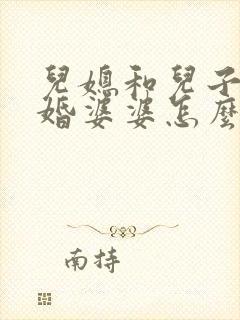 兒媳和兒子
婚婆婆怎麼
南持